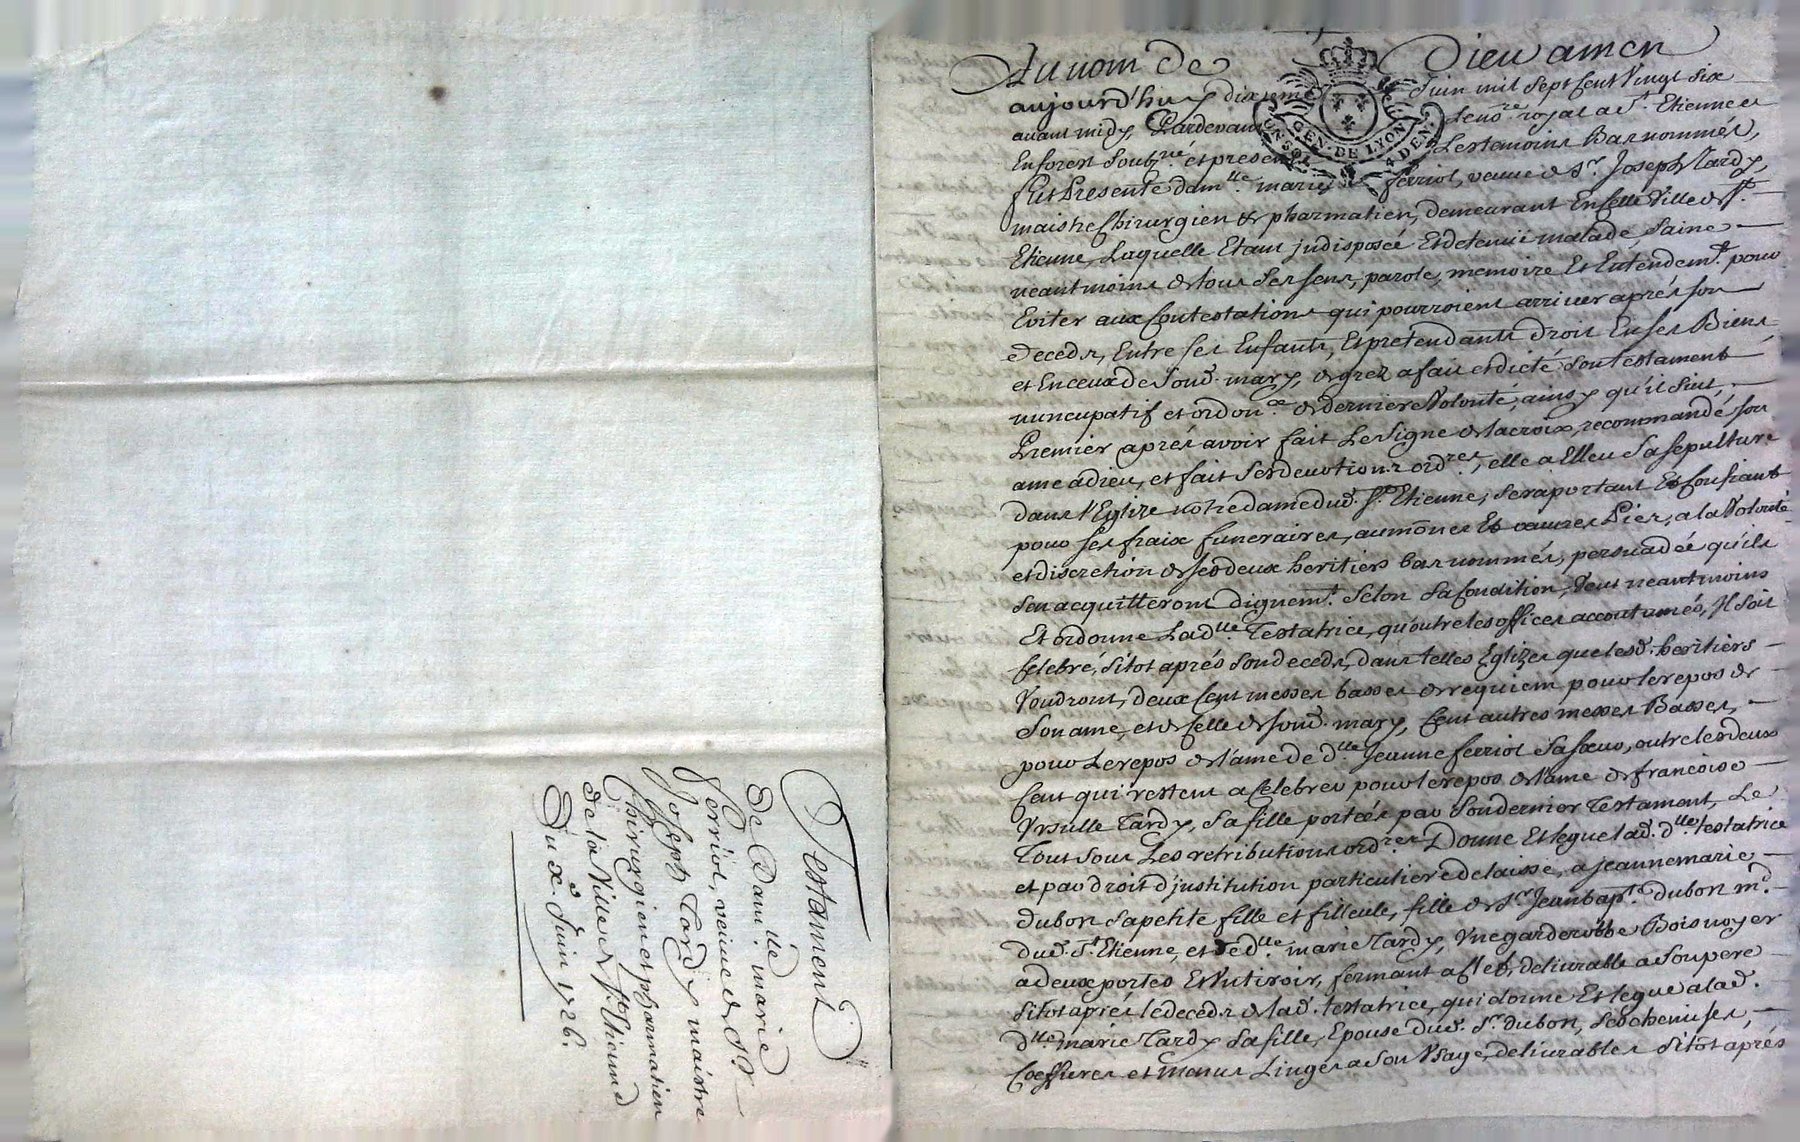 Testament
de Dam.lle marie
Ferriol, veuve de Sr
Joseph Tardy maistre
Chirurgien et pharmatien
de la Ville de St. Etienne
Du xe. Juin 1726.
Au nom de Dieu amen
aujourd'huy dixieme Juin mil sept cent Vingt six
avant midy Pardevant Le no.re royal a St. Etienne en
En forest soubz.né et presens Les tamoins Bas nommés,
fut Presente dam.lle marie ferriol, veuve de Sr. Joseph Tardy,
maistre Chirurgien & pharmatien, demeurant En Celle Ville de St.
Etienne, Laquelle Etant jndisposée Et detenüe malade, saine
neantmoins de tous ses sens, parole, memoire Et Entendem.t pour
Eviter aux Contestations qui pourroient arriver aprés son
decedz, Entre ses Enfants, Et pretendants droit En ses Biens
et En ceux de Soud. mary, de grez a fait et dicté son testament
nuncupatif et ordon.ce de derniere Volonté, ainsy qu'il suit,
Premier aprés avoir fait Le Signe de la croix, recommandé son
ame a dieu, et fait ses devotions ord.res, elle a Elleu Sa sepulture
dans l'Eglize notre dame dud. St. Etienne, se raportant Et Confiant
pour ses fraix funeraires, aumônes Et œuvres Pies, a la Volonté
et discretion de ses deux heritiers bas nommés, persuadée qu'ils
sen acquitteront dignem.t Selon sa Condition, Veut neantmoins
Et ordonne Lad.lle Testatrice, qu'outre les offices accoutumés, Il soit
Celebré, sitot aprés son decedz, dans telles Eglizes que lesd. heritiers
Voudront, deux Cent messes basses de requiem pour le repos de
Son ame, et de Celle de soud. mary, Cent autres messes Basses,
pour Le repos de l'ame de d.lle Jeanne ferriol sa sœur, outre les deux
Cent qui restent a Celebrer pour le repos de l'ame de francoise
Ursulle Tardy, sa fille portées par Son dernier Testament, Le
Tout sous Les retributions ord.res Donne Et legue lad. d.lle testatrice
et par droit d'justitution particuliere delaisse, a jeanne marie
dubon sa petite fille et filleule, fille de Sr. Jean bap.te dubon m.d
dud. St. Etienne, et de d.lle marie Tardy, Une garderobbe Bois noyer
a deux portes Et Un tiroir, fermant a Clef, delivrable a Son pere
sitot aprés le decedz de lad. testatrice, qui donne Et legue a lad.
d.lle marie Tardy sa fille, Epouse dud. Sr. dubon, ses chemises,
Coeffures et menus Linges a Son Usage, delivrables sitot aprés